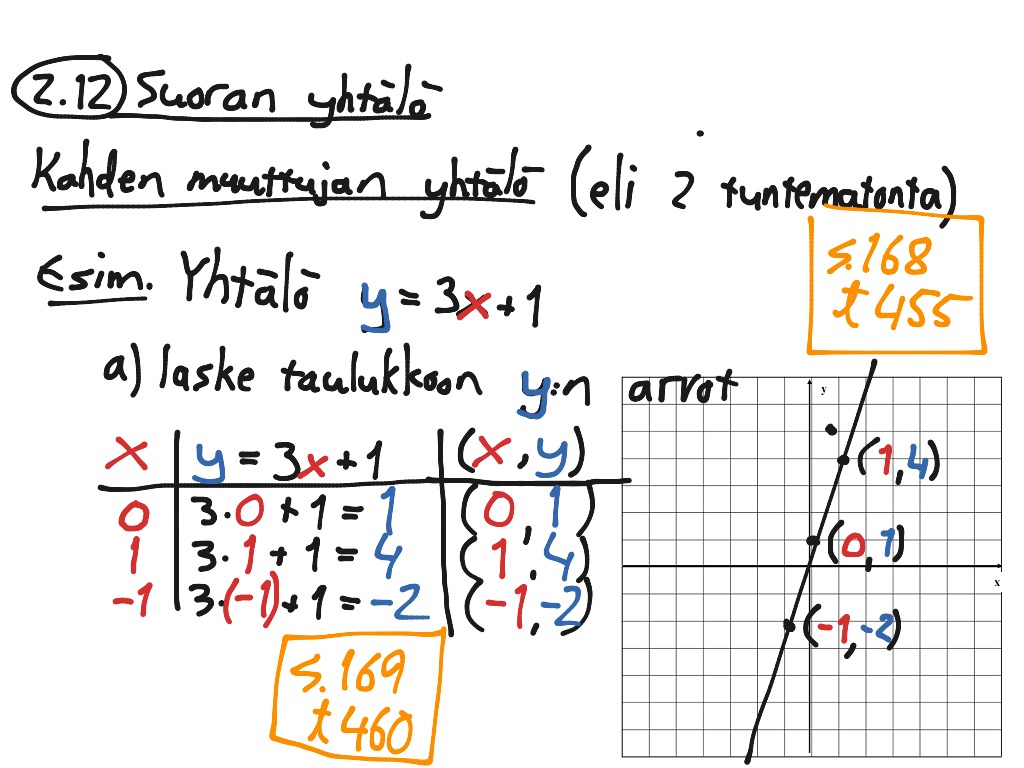 2.12 Suoran yhtälö
Kahden muuttujan yhtälö (eli 2 tuntematonta)
s.168
t 455
Esim. Yhtälö y = 3x + 1
a) laske taulukkoon y:n arvot
x y = 3x + 1 (x, y)
0 3·0 + 1 = 1 (0, 1)
1 3·1 + 1 = 4 (1, 4)
-1 3·(-1) + 1 = -2 (-1, -2)
s.169
t 460
y
(1, 4)
(0, 1)
x
(-1, -2)